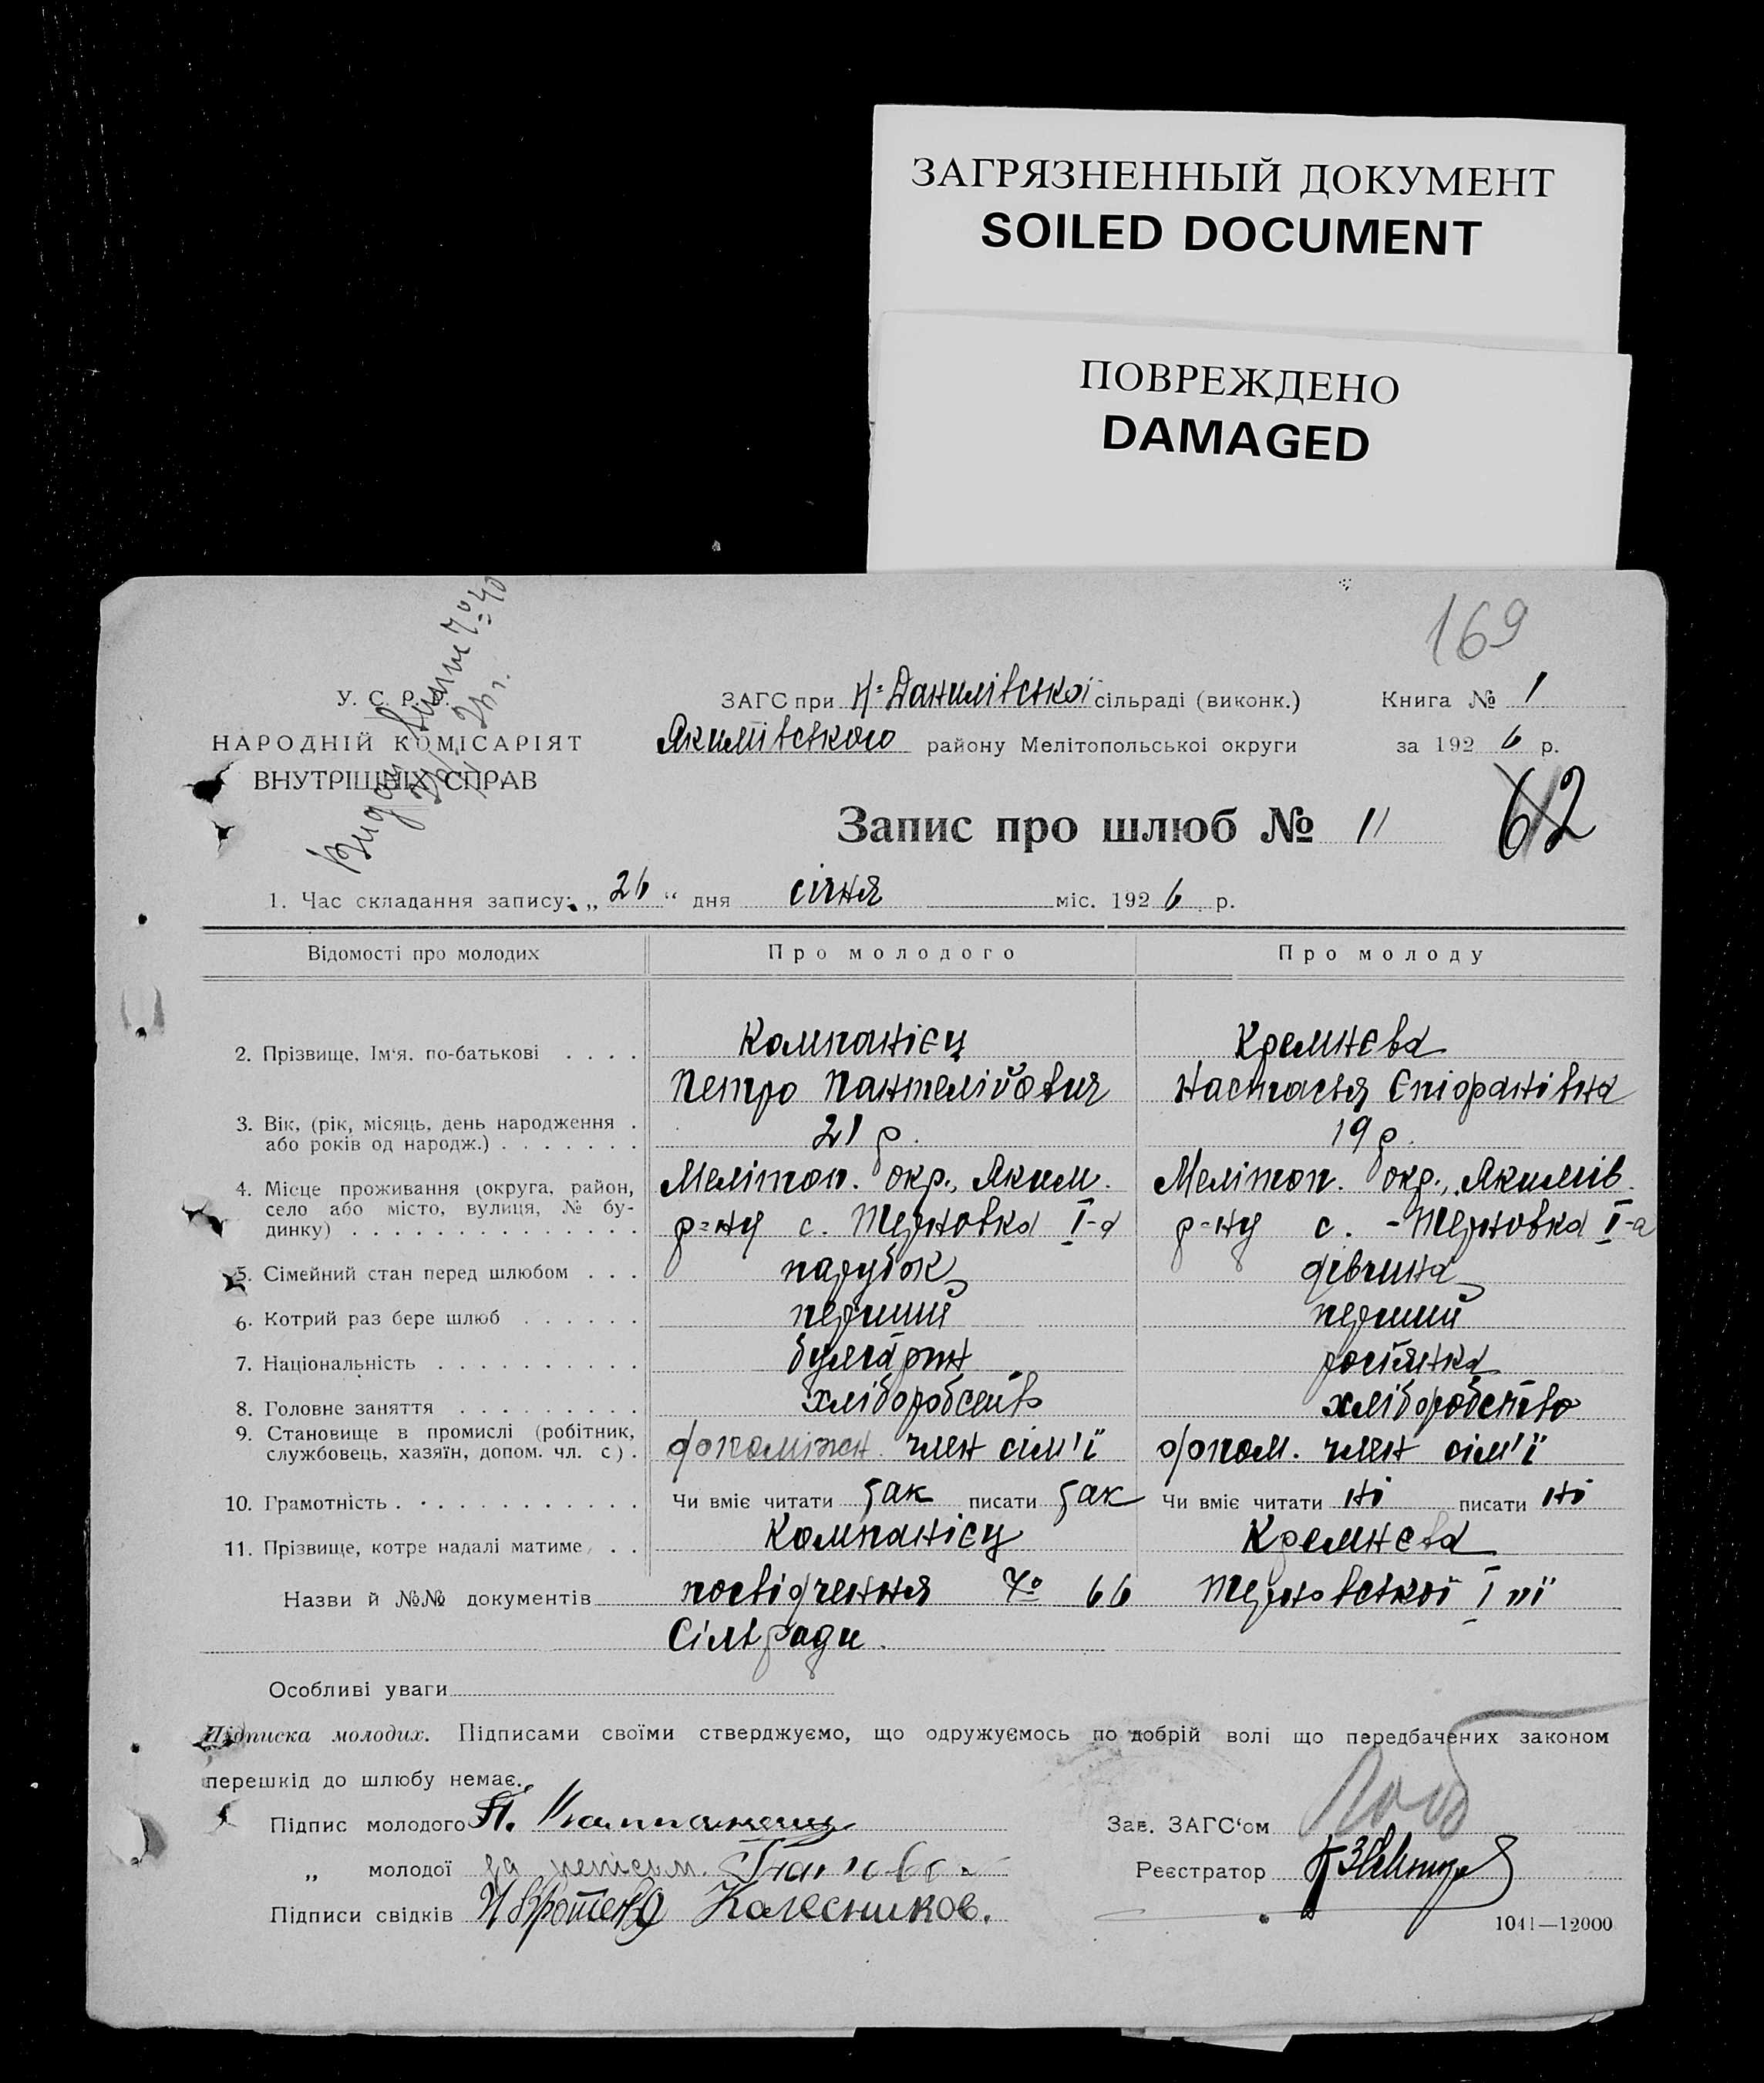 ЗАГРЯЗНЕННЫЙ ДОКУМЕНТ
SOILED DOCUMENT
ПОВРЕЖДЕНО
DAMAGED
169
У. С. Р. Р.
НАРОДНІЙ КОМІСАРІЯТ
ВНУТРІШНІХ СПРАВ
ЗАГС при Н-Данилівської сільраді (виконк.)
Книга № 1
Якимівського району Мелітопольської округи
за 1926 р.
Запис про шлюб № 11
62
1. Час складання запису: „26“ дня січня міс. 1926 р.
Відомості про молодих Про молодого Про молоду
2. Прізвище, Ім'я, по-батькові . . . . Компанієц Кремнєва
Петро Пантелійович Настасья Єпіфанівна
3. Вік, (рік, місяць, день народження . 21 р. 19 р.
або років од народж.) . . . . . . .
4. Місце проживання (округа, район, Меліτοπ. окр., Яким. Мелітоп. окр., Якимів.
село або місто, вулиця, № бу-
динку) . . . . . . . . . . . . . . р-ну с. Терновка І-а р-ну с. - Терновка І-а
5. Сімейний стан перед шлюбом . . . парубок дівчина
6. Котрий раз бере шлюб . . . . . . перший перший
7. Національність . . . . . . . . . . булгарин росіянка
8. Головне заняття . . . . . . . . . хліборобств хліборобство
9. Становище в промислі (робітник,
службовець, хазяїн, допом. чл. с) . допоміжн. член сім'ї допом. член сім'ї
10. Грамотність . . . . . . . . . . . . Чи вміє читати так писати так Чи вміє читати ні писати ні
11. Прізвище, котре надалі матиме . . Компанієц Кремнєва
Назви й №№ документів посвідчення № 66 Терновської І ої
Сільради.
Особливі уваги
Підписка молодих. Підписами своїми стверджуємо, що одружуємось по добрій волі що передбачених законом
перешкід до шлюбу немає.
Підпис молодого П. Компанеец
Зав. ЗАГС'ом
„ молодої за неписьм.
Реєстратор
Підписи свідків Колесников.
1041—12000